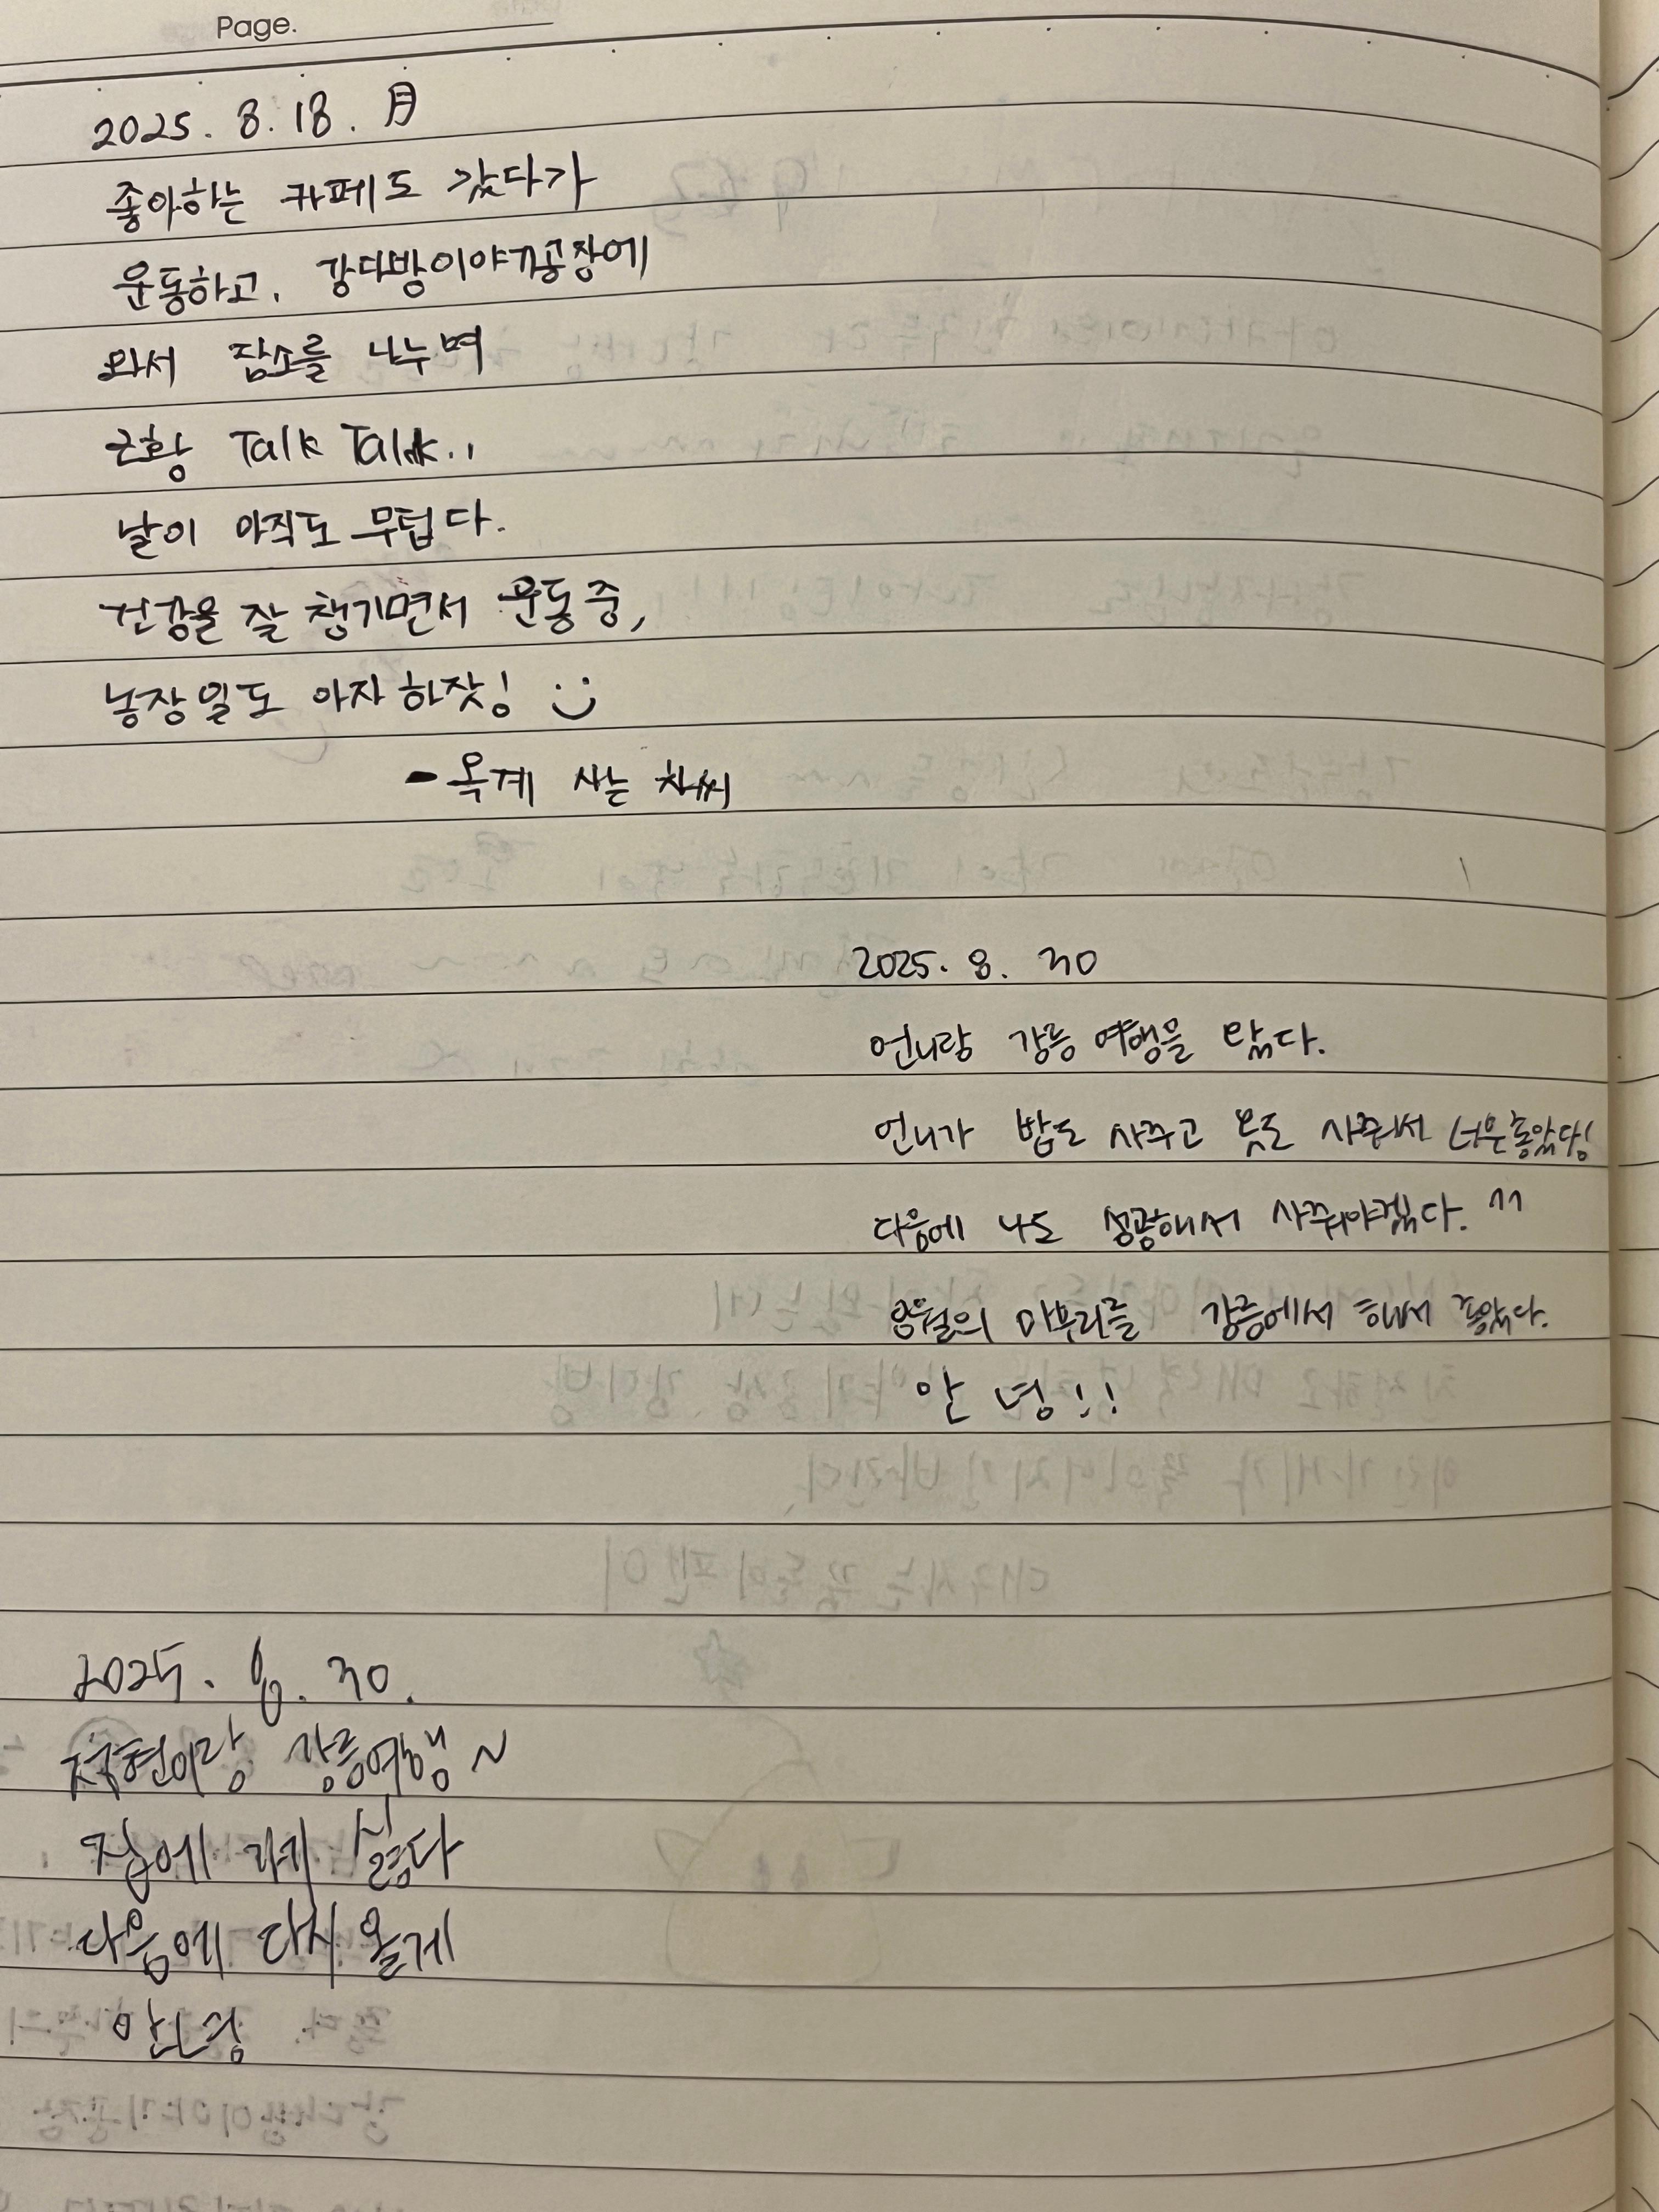 Page.
2025. 8. 18. 月
좋아하는 카페도 갔다가
운동하고, 강다방이야기공장에
와서 잡소를 나누며
근황 Talk Talk..
날이 아직도 무덥다.
건강을 잘 챙기면서 운동 중,
농장일도 아자 하잣! :)
- 옥계 사는 차씨
2025. 8. 30
언니랑 강릉 여행을 왔다.
언니가 밥도 사주고 옷도 사줘서 너무 좋았다!
다음에 나도 성공해서 사줘야겠다. ^^
8월의 마무리를 강릉에서 해서 좋았다.
안 녕!!
2025. 8. 30.
이랑 강릉여행 ~
집에 가기 싫다
다음에 다시 올게
안녕